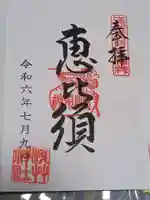 奉拝
恵比須
令和六年七月九日